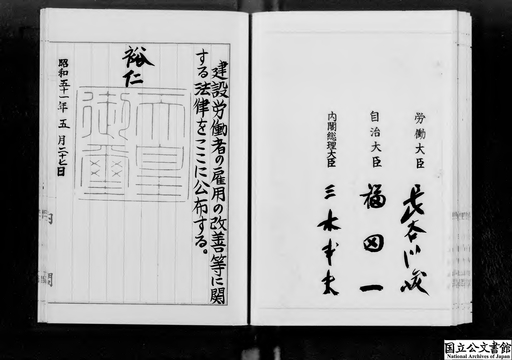 建設労働者の雇用の改善等に関
する法律をここに公布する。
裕仁
天皇
御璽
昭和五十一年五月二十七日
労働大臣 長谷川峻
自治大臣 福田一
内閣総理大臣 三木武夫
国立公文書館
National Archives of Japan